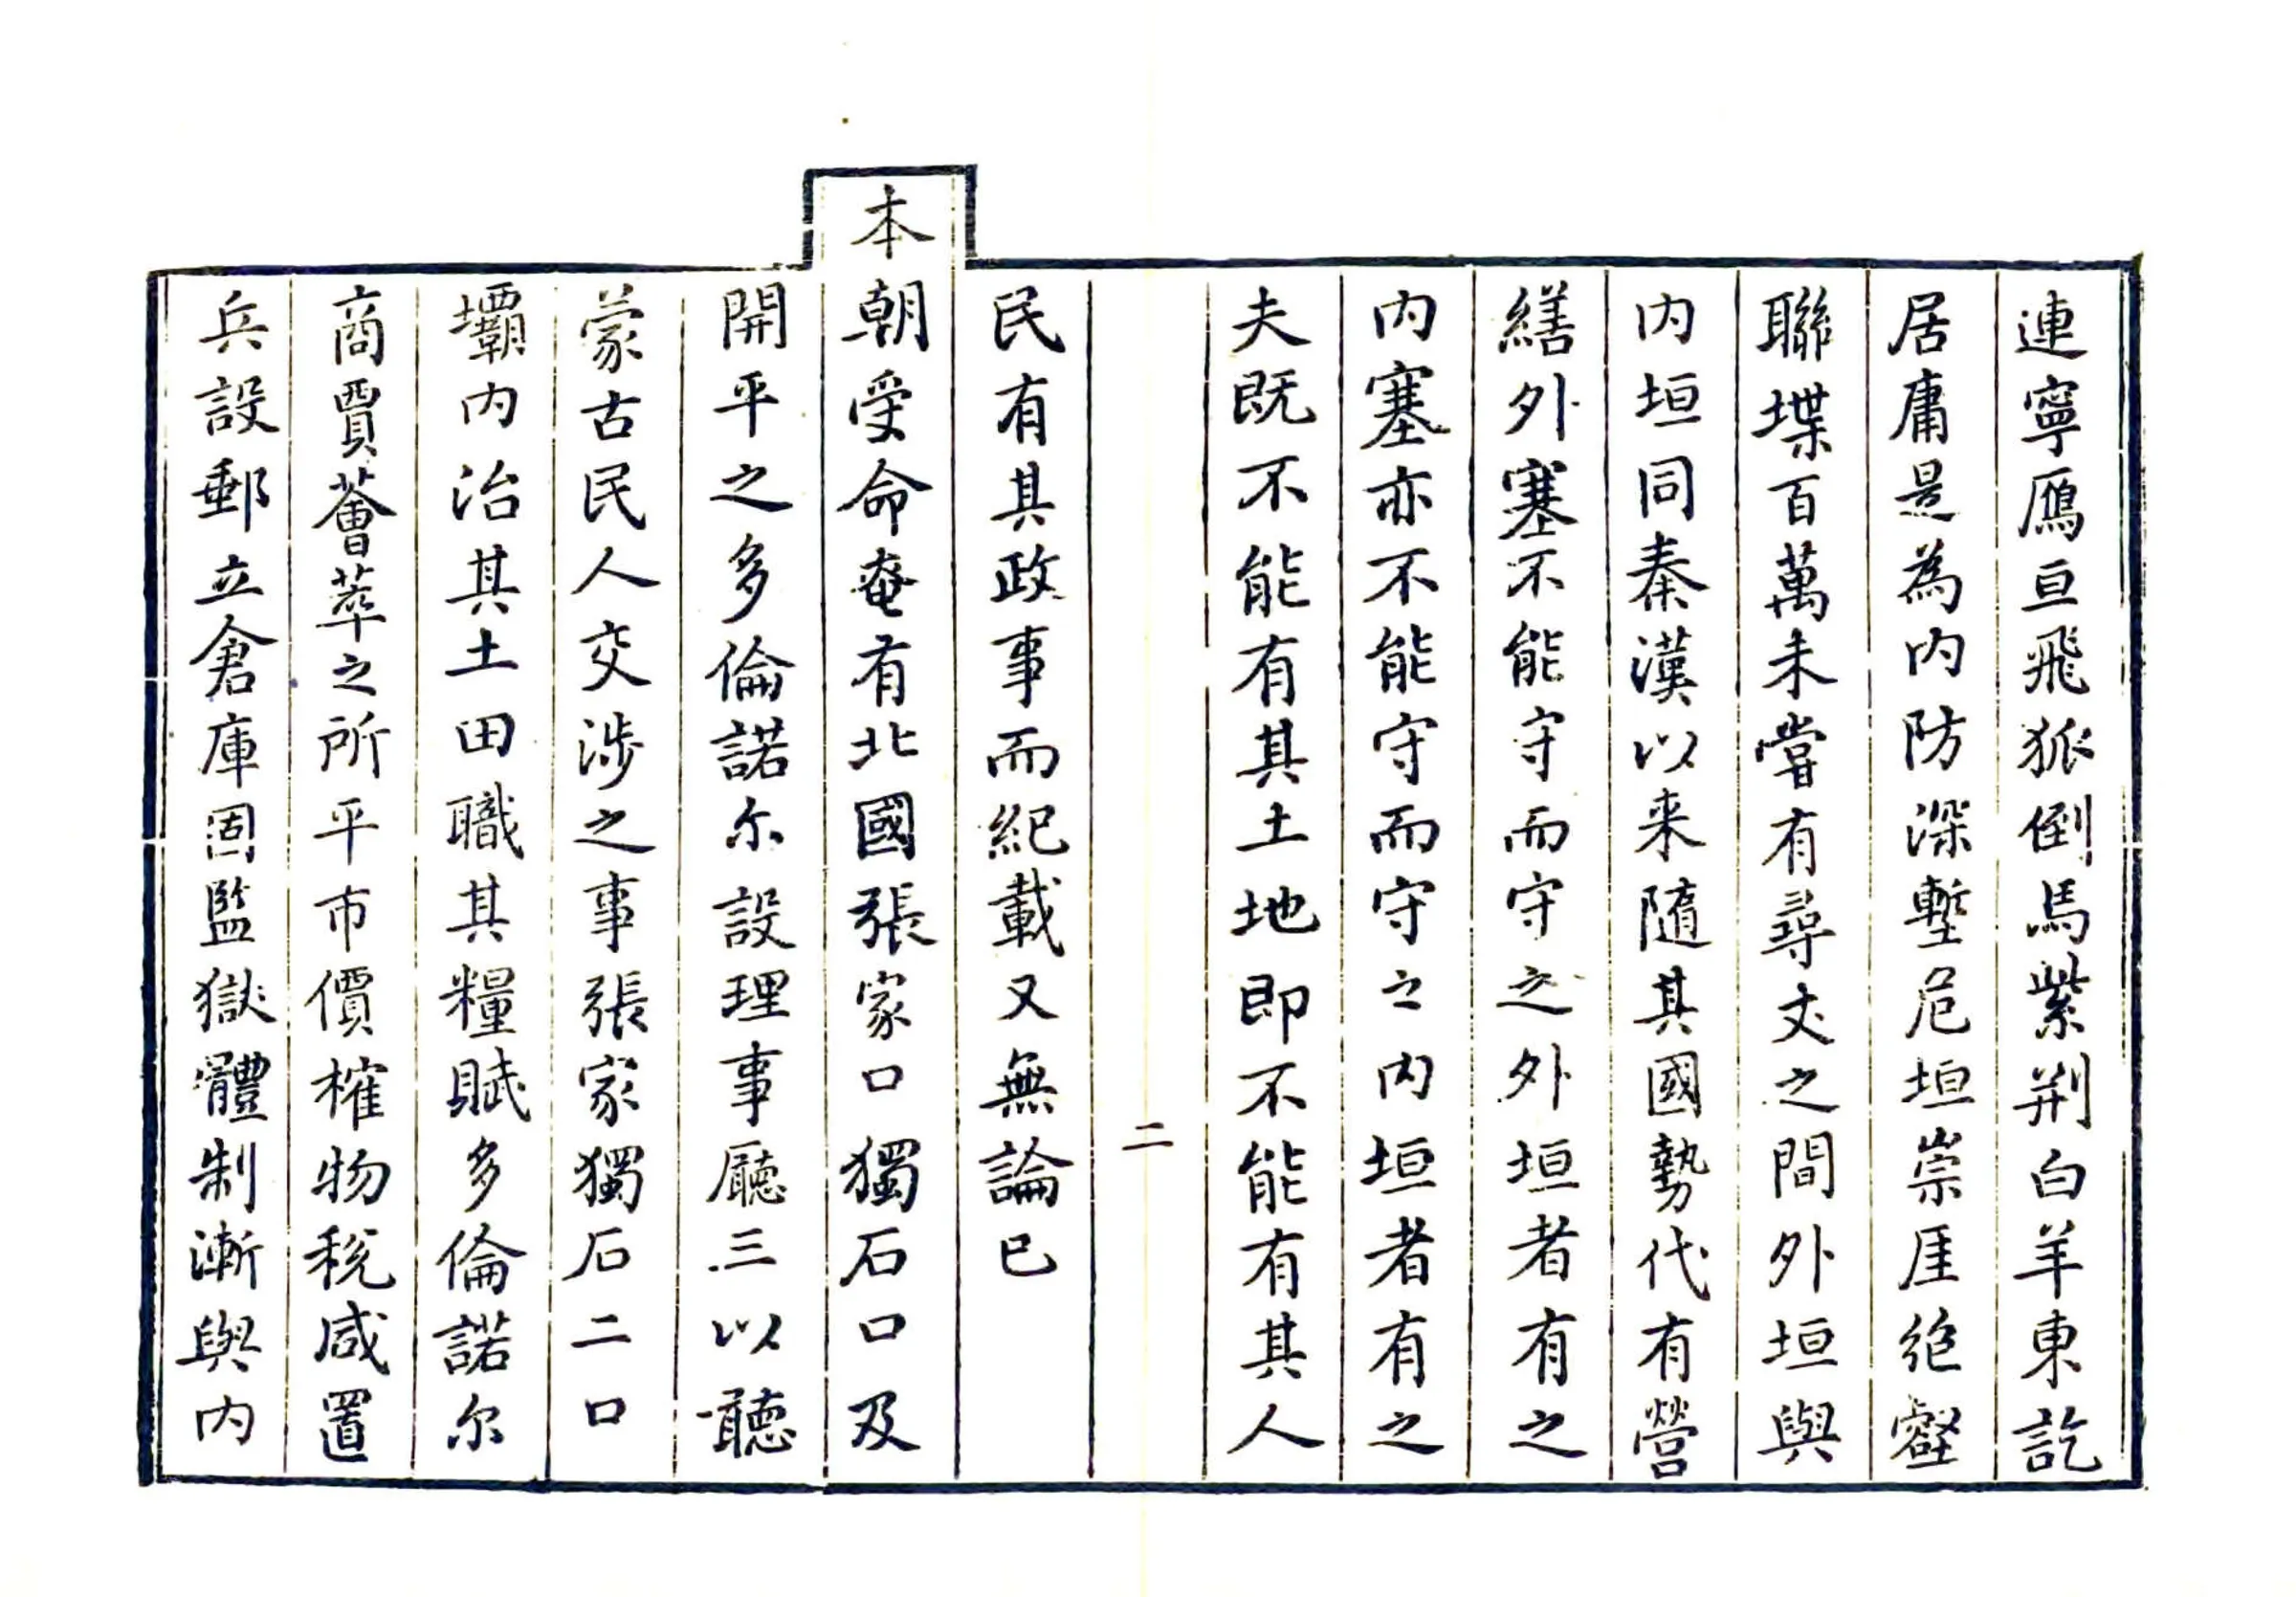 連寧鴈亘飛狐倒馬紫荆白羊東訖
居庸是為内防深塹危垣崇厓絶壑
聯堞百萬未嘗有尋丈之間外垣與
内垣同秦漢以来隨其國勢代有營
繕外塞不能守而守之外垣者有之
内塞亦不能守而守之内垣者有之
夫既不能有其土地即不能有其人
二
民有其政事而紀載又無論已
本朝受命奄有北國張家口獨石口及
開平之多倫諾尔設理事廳三以聽
蒙古民人交涉之事張家獨石二口
壩内治其土田職其糧賦多倫諾尔
商賈薈萃之所平市價榷物税咸置
兵設郵立倉庫固監獄體制漸與内